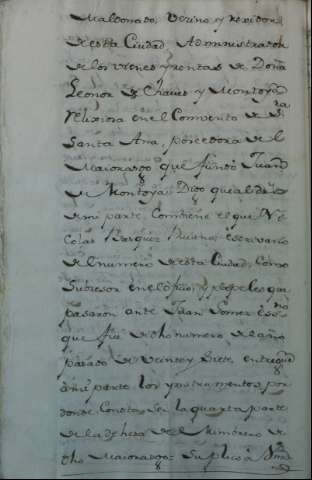 Maldonado, Vezino y rexidor
de esta Ciudad, Administrador
de los vienes y rentas de Doña
Leonor de Chaues y Montoya
relixiosa en el Convento de
Santa Ana, posedora del
Maiorazgo que fundo Juan
de Montoya Digo que al dro
de mi parte, Combiene el que Ni
colas Vazquez Bueno, escrivano
del numero de esta Ciudad, Como
Subzesor en el ofizio, y papeles que
pasaron ante Juan Gomez
que fue de dho numero el año
pasado de Veinte y Siete, entregue
a mi parte los ynstrumentos por
donde Consta Ser la quarta parte
de la dehesa del de
dho Maiorazgo = Suplico a Vmd